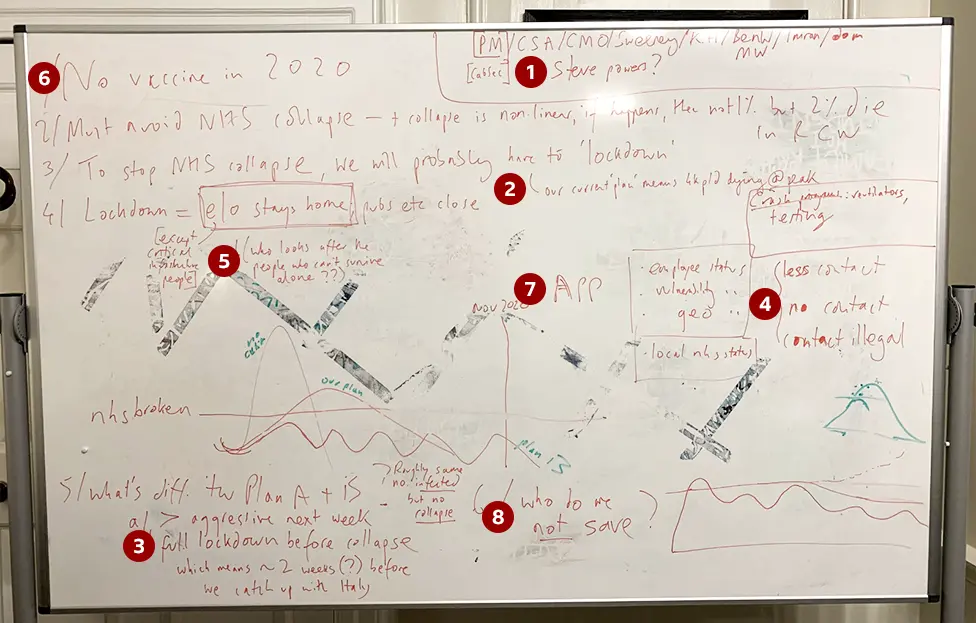 [PM]/CSA/CMO/Sweeney/KH/BenW/Imran/dom
MW
[CabSec]
1
Steve powers?
6
/No vaccine in 2020
2/ Must avoid NHS collapse – + collapse is non-linear, if happens, then not 1% but 2% die
in RCW
3/ To stop NHS collapse, we will probably have to 'lockdown'
2
our current 'plan' means 4k p/d dying @ peak
4/ Lockdown = e/o stays home, pubs etc close
[except
critical
infrastructure
people]
5
(who looks after the
people who can't survive
alone ???)
Crash programs: ventilators,
testing
7
APP
· employee status
· vulnerability ..
· geo ..
· local nhs status
4
less contact
no contact
contact illegal
Nov 2020
our plan
nhs broken
plan iS
5/ what's diff tw Plan A + iS
a/ > aggressive next week
3
full lockdown before collapse
which means ~ 2 weeks (?) before
we catch up with Italy
Roughly same
no. infected
but no
collapse
8
6/ who do we
not save?